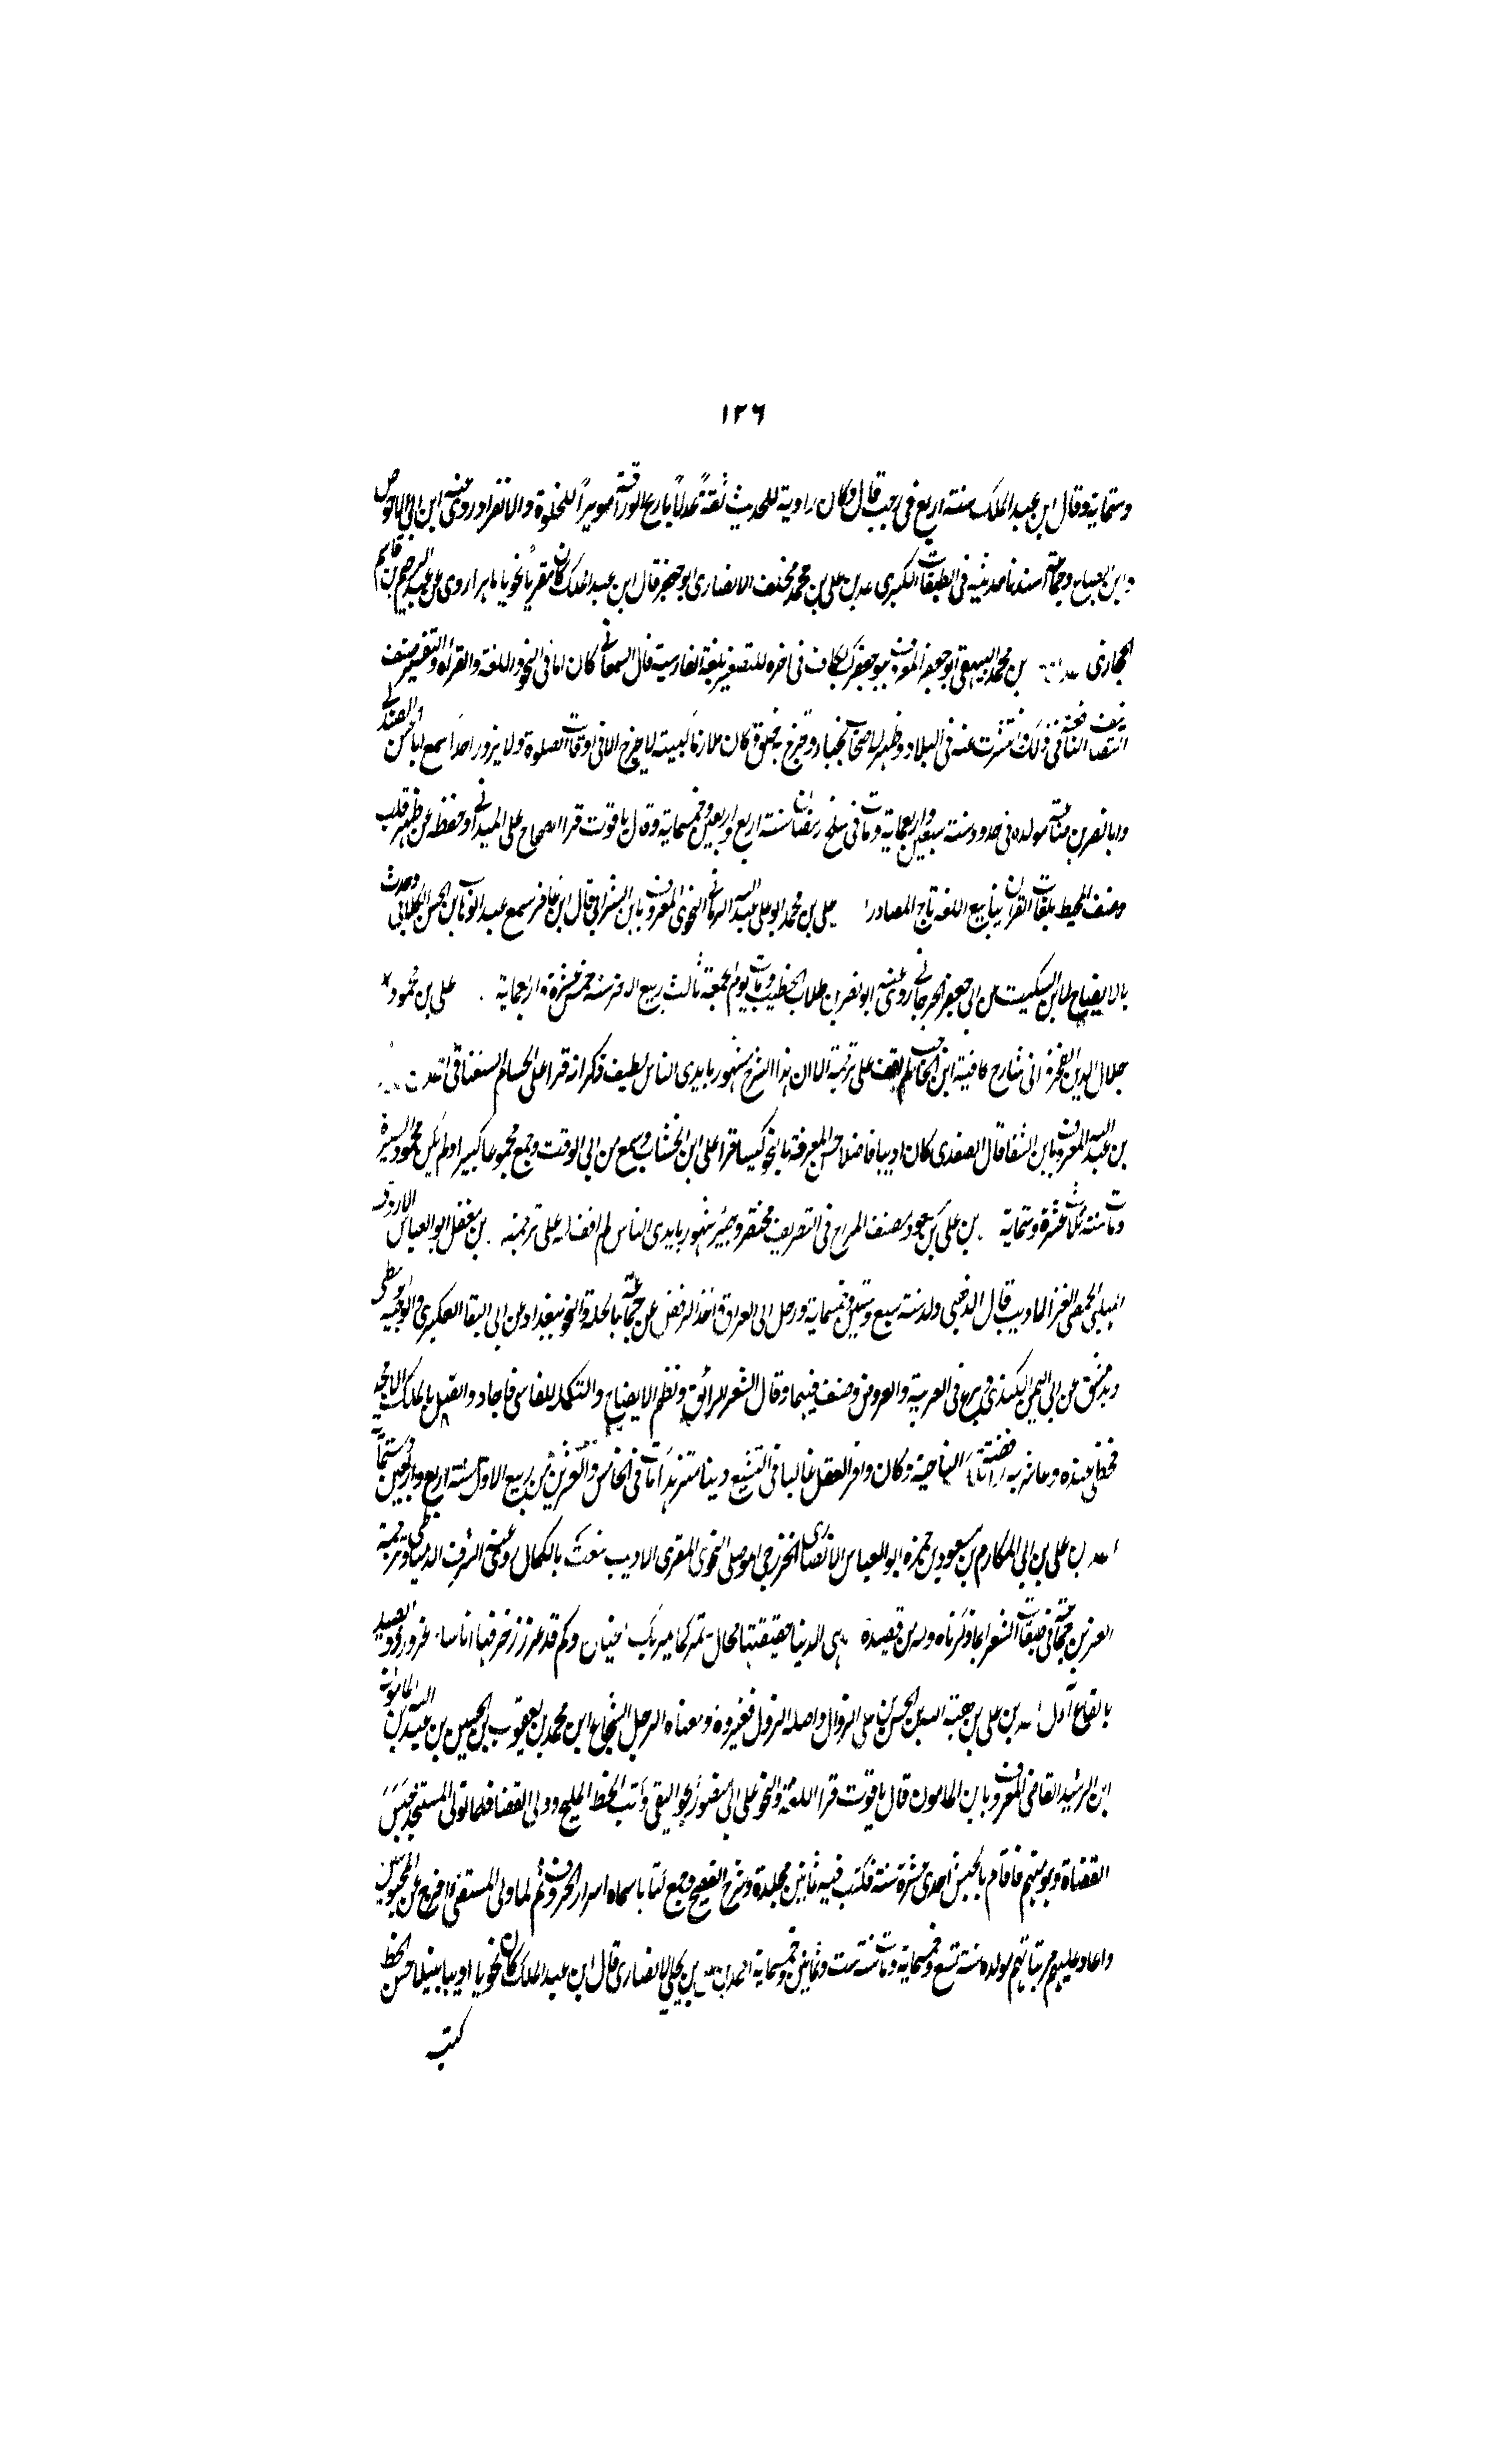 ١٢٦
وستماية وقال ابن عبد الملك سنة اربع فى رجب قال وكان راوية للحديث ثقة عدلا بارع الوراقة موثرا للخلوة والانفراد روى عنه ابن ابى الاحوص
وابن العباس وجماعة اسندنا حديثه فى الطبقات الكبرى بن على بن محمد بن خلف الانصارى ابو جعفر قال ابن عبد الملك كان مقريا نحويا ماهرا روى عن عبد الرحيم بن قاسم
الحجارى بن محمد البيهقى ابو جعفر المعروف ببوجعفرك الكاف فى اخره للتصغير بلغة الفارسية قال السمعانى كان اماما فى النحو واللغة والقراة والتفسير صنف
التصانيف النافعة فى ذلك وانتشرت عنه فى البلاد وظهر له اصحاب نجباء وتخرج به خلق كان ملازما لبيته لا يخرج الا فى اوقات الصلوة ولا يزور احدا سمع ابا الحسن الصندلى
وابا نصر بن مولده فى حدود سنة سبعين واربعماية ومات فى سلخ رمضان سنة اربع واربعين وخمسماية وقال ياقوت قرا الصحاح على الميدانى وحفظه عن ظهر قلب
وصنف المحيط بلغات القران ينابيع اللغة تاج المصادر على بن محمد ابو على عبد الله الرمانى النحوى المعروف بابن الشرابى قال ابن عساكر سمع عبد الوهاب بن الحسن الكلابى وحدث
بالاصلاح لابن السكيت عن ابى جعفر الجرجانى روى عنه ابو نصر بن طلاب الخطيب ومات يوم الجمعة ثالث ربيع الاخر سنة خمس عشرة واربعماية على بن محمود
جلال الدين الغجدوانى شارح كافية ابن الحاجب لم اقف على ترجمة الا ان هذا الشرح مشهور بايدى الناس لطيف ذكر انه قرا على الحسام السغناقى
بن عبد الله المعروف بابن الشفا قال الصفدى كان اديبا فاضلا حسن المعرفة بالنحو كيسا قرا على ابن الخشاب وسمع من ابى الوقت وجمع مجموعا كبيرا ولم يكن محمود السيرة
مات سنة ثلاث عشرة وستماية بن على بن مسعود مصنف المراح فى التصريف مختصر وجيز مشهور بايدى الناس لم اقف له على ترجمة بن معقل ابو العباس الازدى
المهلبى الحمصى العز الاديب قال الذهبى ولد سنة سبع وستين وخمسماية ورحل الى العراق اخذ الرفض عن جماعة بالحلة والنحو ببغداد من ابى البقا العكبرى والوجيه الواسطى
وبدمشق من ابى اليمن الكندى وبرع فى العربية والعروض وصنف فيهما وقال الشعر الرائق ونظم الايضاح والتكملة للفارسى فاجاد واتصل بالملك الامجد
فحظى عنده وعاش به رافضة تلك الناحية وكان وافر العقل غاليا فى التشيع دينا متزهدا مات فى الخامس والعشرين من ربيع الاول سنة اربع واربعين وستماية
بن على بن ابى المكارم بن مسعود بن حمزة ابو العباس الانصارى الخزرجى الموصلى النحوى المقرى الاديب ينعت بالكمال روى عنه الشرف الدمياطى وترجمه
العز بن جماعة فى طبقات الشعرا بما ذكرناه وله من قصيدة هى الدنيا حقيقتها محال تمر كما يمر بك الخيال وكم قد غر زخرفها اناسا غرور ذوى الصيد
بالقاع آل بن على بن هبة الله بن الحسن بن على الزوال واصله الزول فغيروه ومعناه الرجل الشجاع ابن محمد بن يعقوب بن الحسين بن عبد الله المامون
ابن الرشيد القاضى المعروف بابن المامون قال ياقوت قرا اللغة والنحو على ابى منصور الجواليقى وكتب الخط المليح وولى القضا فلما تولى المستنجد حبس
القضاة وهو منهم فاقام بالحبس احدى عشرة سنة فكتب فيه ثمانين مجلدة وشرح الفصيح وجمع كتابا سماه اسرار الحروف ثم لما ولى المستضئ افرج عن المحبوسين
واعاد عليهم مرتباتهم مولده سنة تسع وخمسماية ومات سنة ست وثمانين وخمسماية احمد بن بن يحيى الانصارى قال ابن عبد الملك كان نحويا اديبا نبيلا حسن الخط
كتب